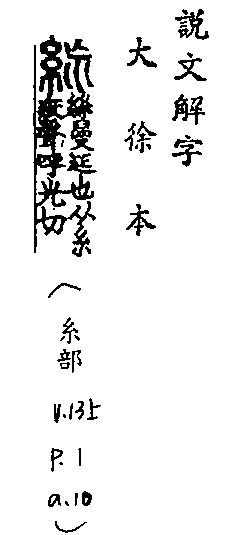 說文解字
大徐本
絲曼延也从糸
巟聲呼光切
(糸部
V.13上
P.1
a.10)